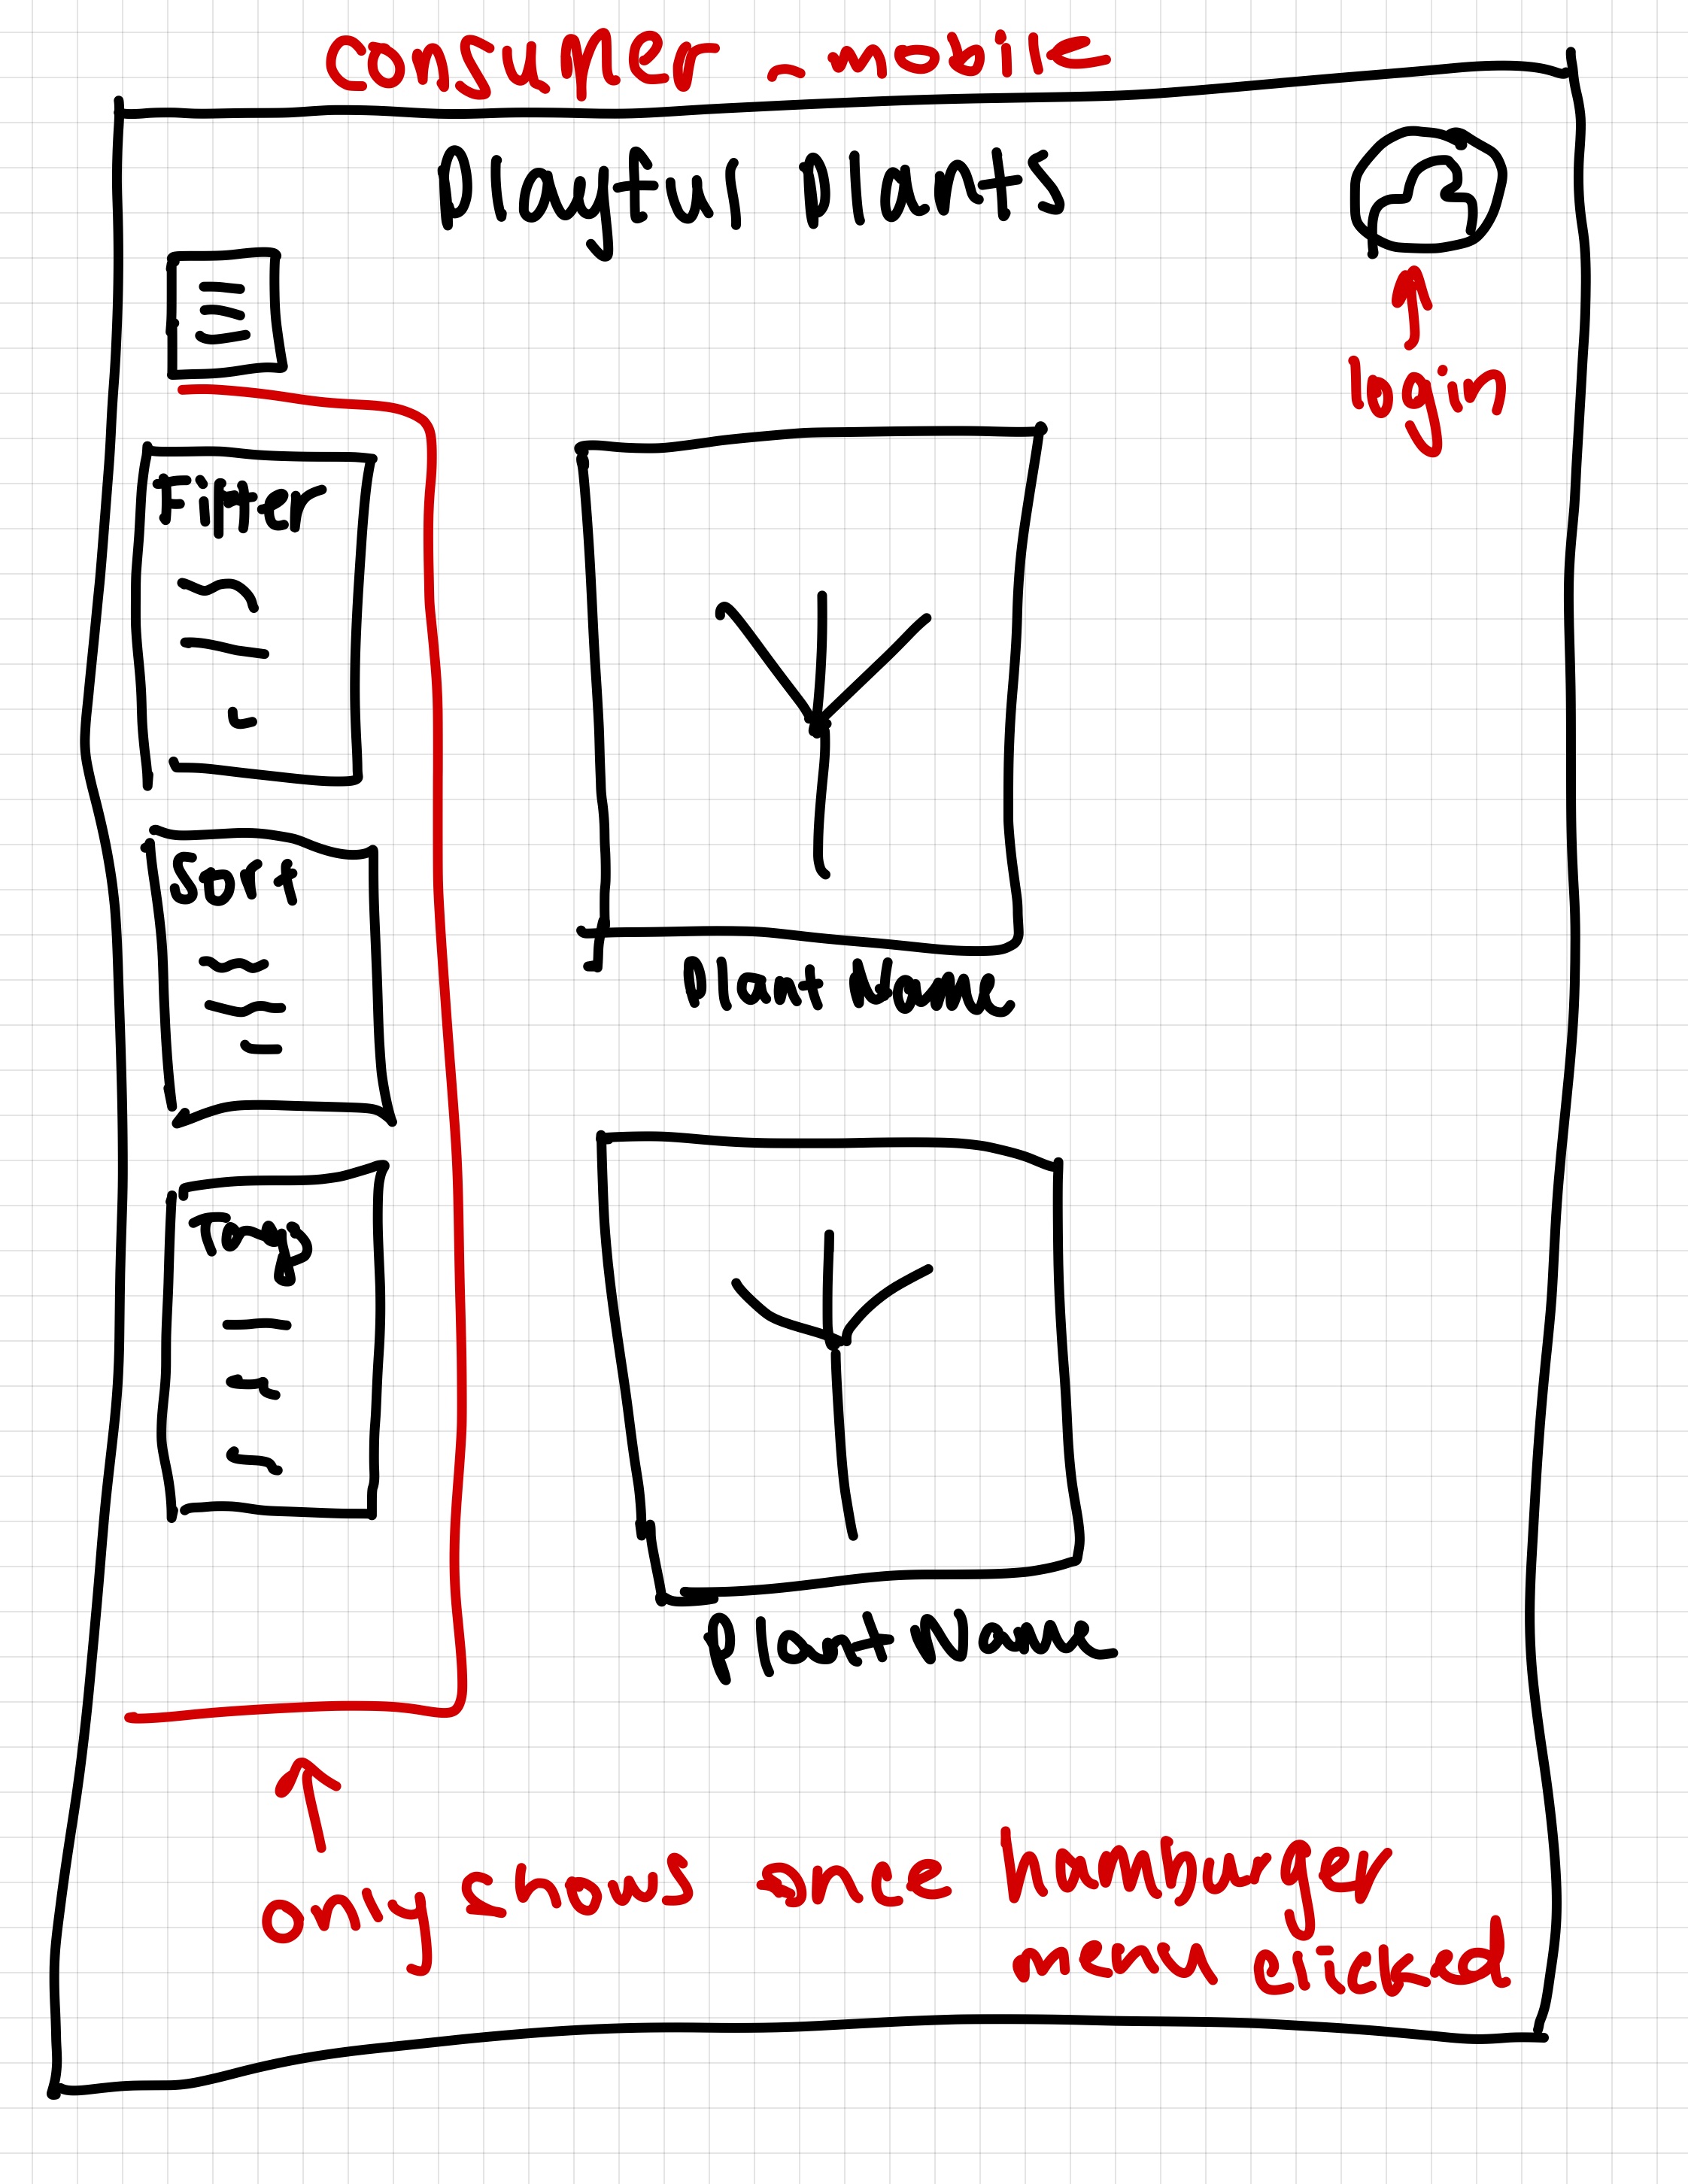 consumer - mobile
Playful Plants
login
Filter
Sort
Tags
Plant Name
Plant Name
only shows once hamburger
menu clicked